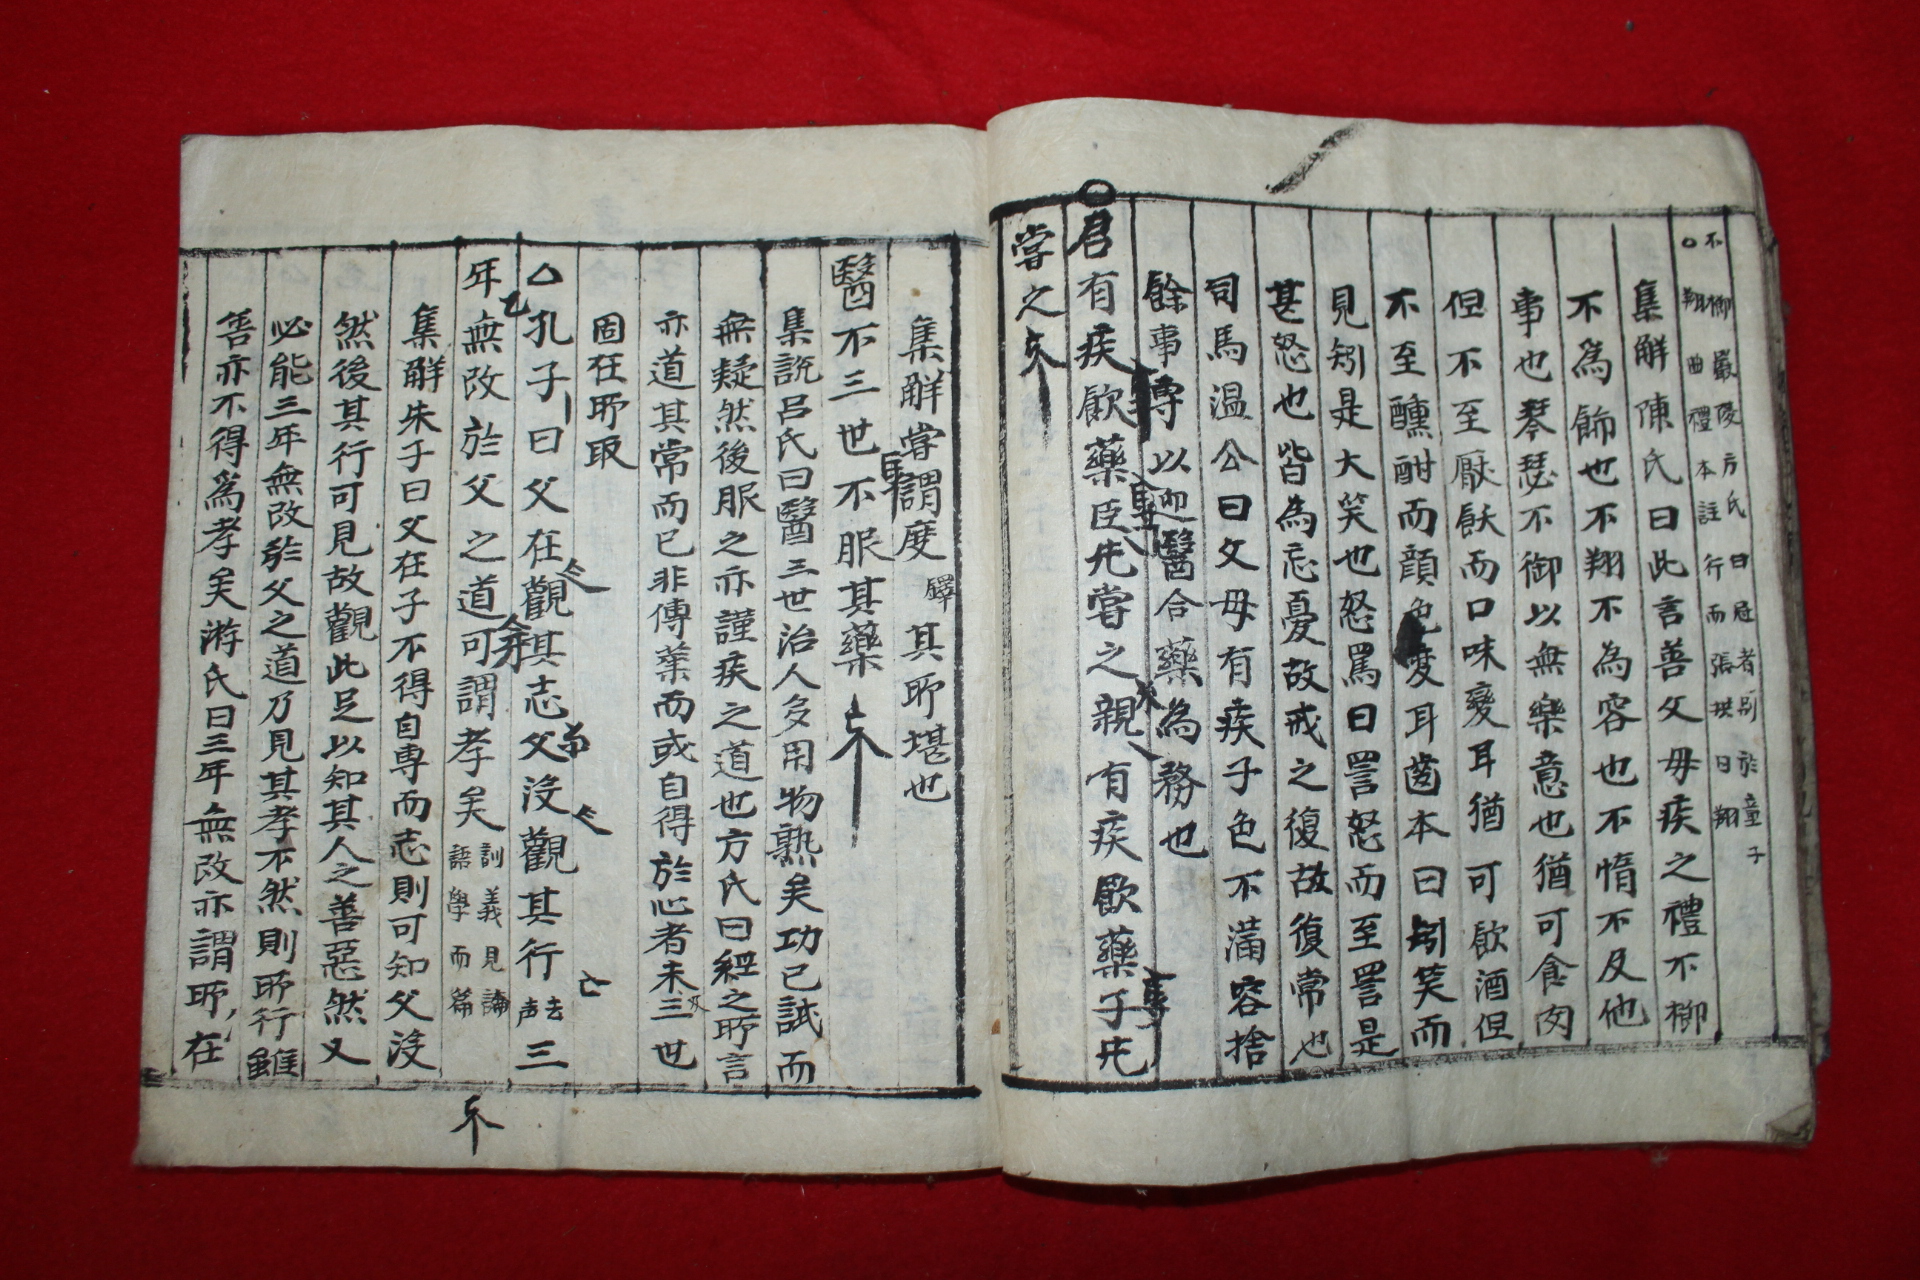 不櫛嚴陵方氏曰冠者別於童子
○翔曲禮本註行而張拱曰翔
集解陳氏曰此言善父母疾之禮不櫛
不為飾也不翔不為容也不惰不及他
事也琴瑟不御以無樂意也猶可食肉
但不至厭飫而口味變耳猶可飮酒但
不至醺酣而顔色變耳齒本曰矧笑而
見矧是大笑也怒罵曰詈怒而至詈是
甚怒也皆為忘憂故戒之復故復常也
司馬温公曰父母有疾子色不滿容捨
餘事專以迎醫合藥為務也
○君有疾飮藥臣先嘗之親有疾飮藥子先
嘗之
集解嘗謂度鐸其所堪也
醫不三世不服其藥
集說呂氏曰醫三世治人多用物熟矣功已試而
無疑然後服之亦謹疾之道也方氏曰經之所言
亦道其常而已非傳業而或自得於心者未三世
固在所取
△孔子曰父在觀其志父沒觀其行去声三
年無改於父之道可謂孝矣訓義見論語學而篇
集解朱子曰父在子不得自專而志則可知父沒
然後其行可見故觀此足以知其人之善惡然又
必能三年無改於父之道乃見其孝不然則所行雖
善亦不得為孝矣游氏曰三年無改亦謂所在